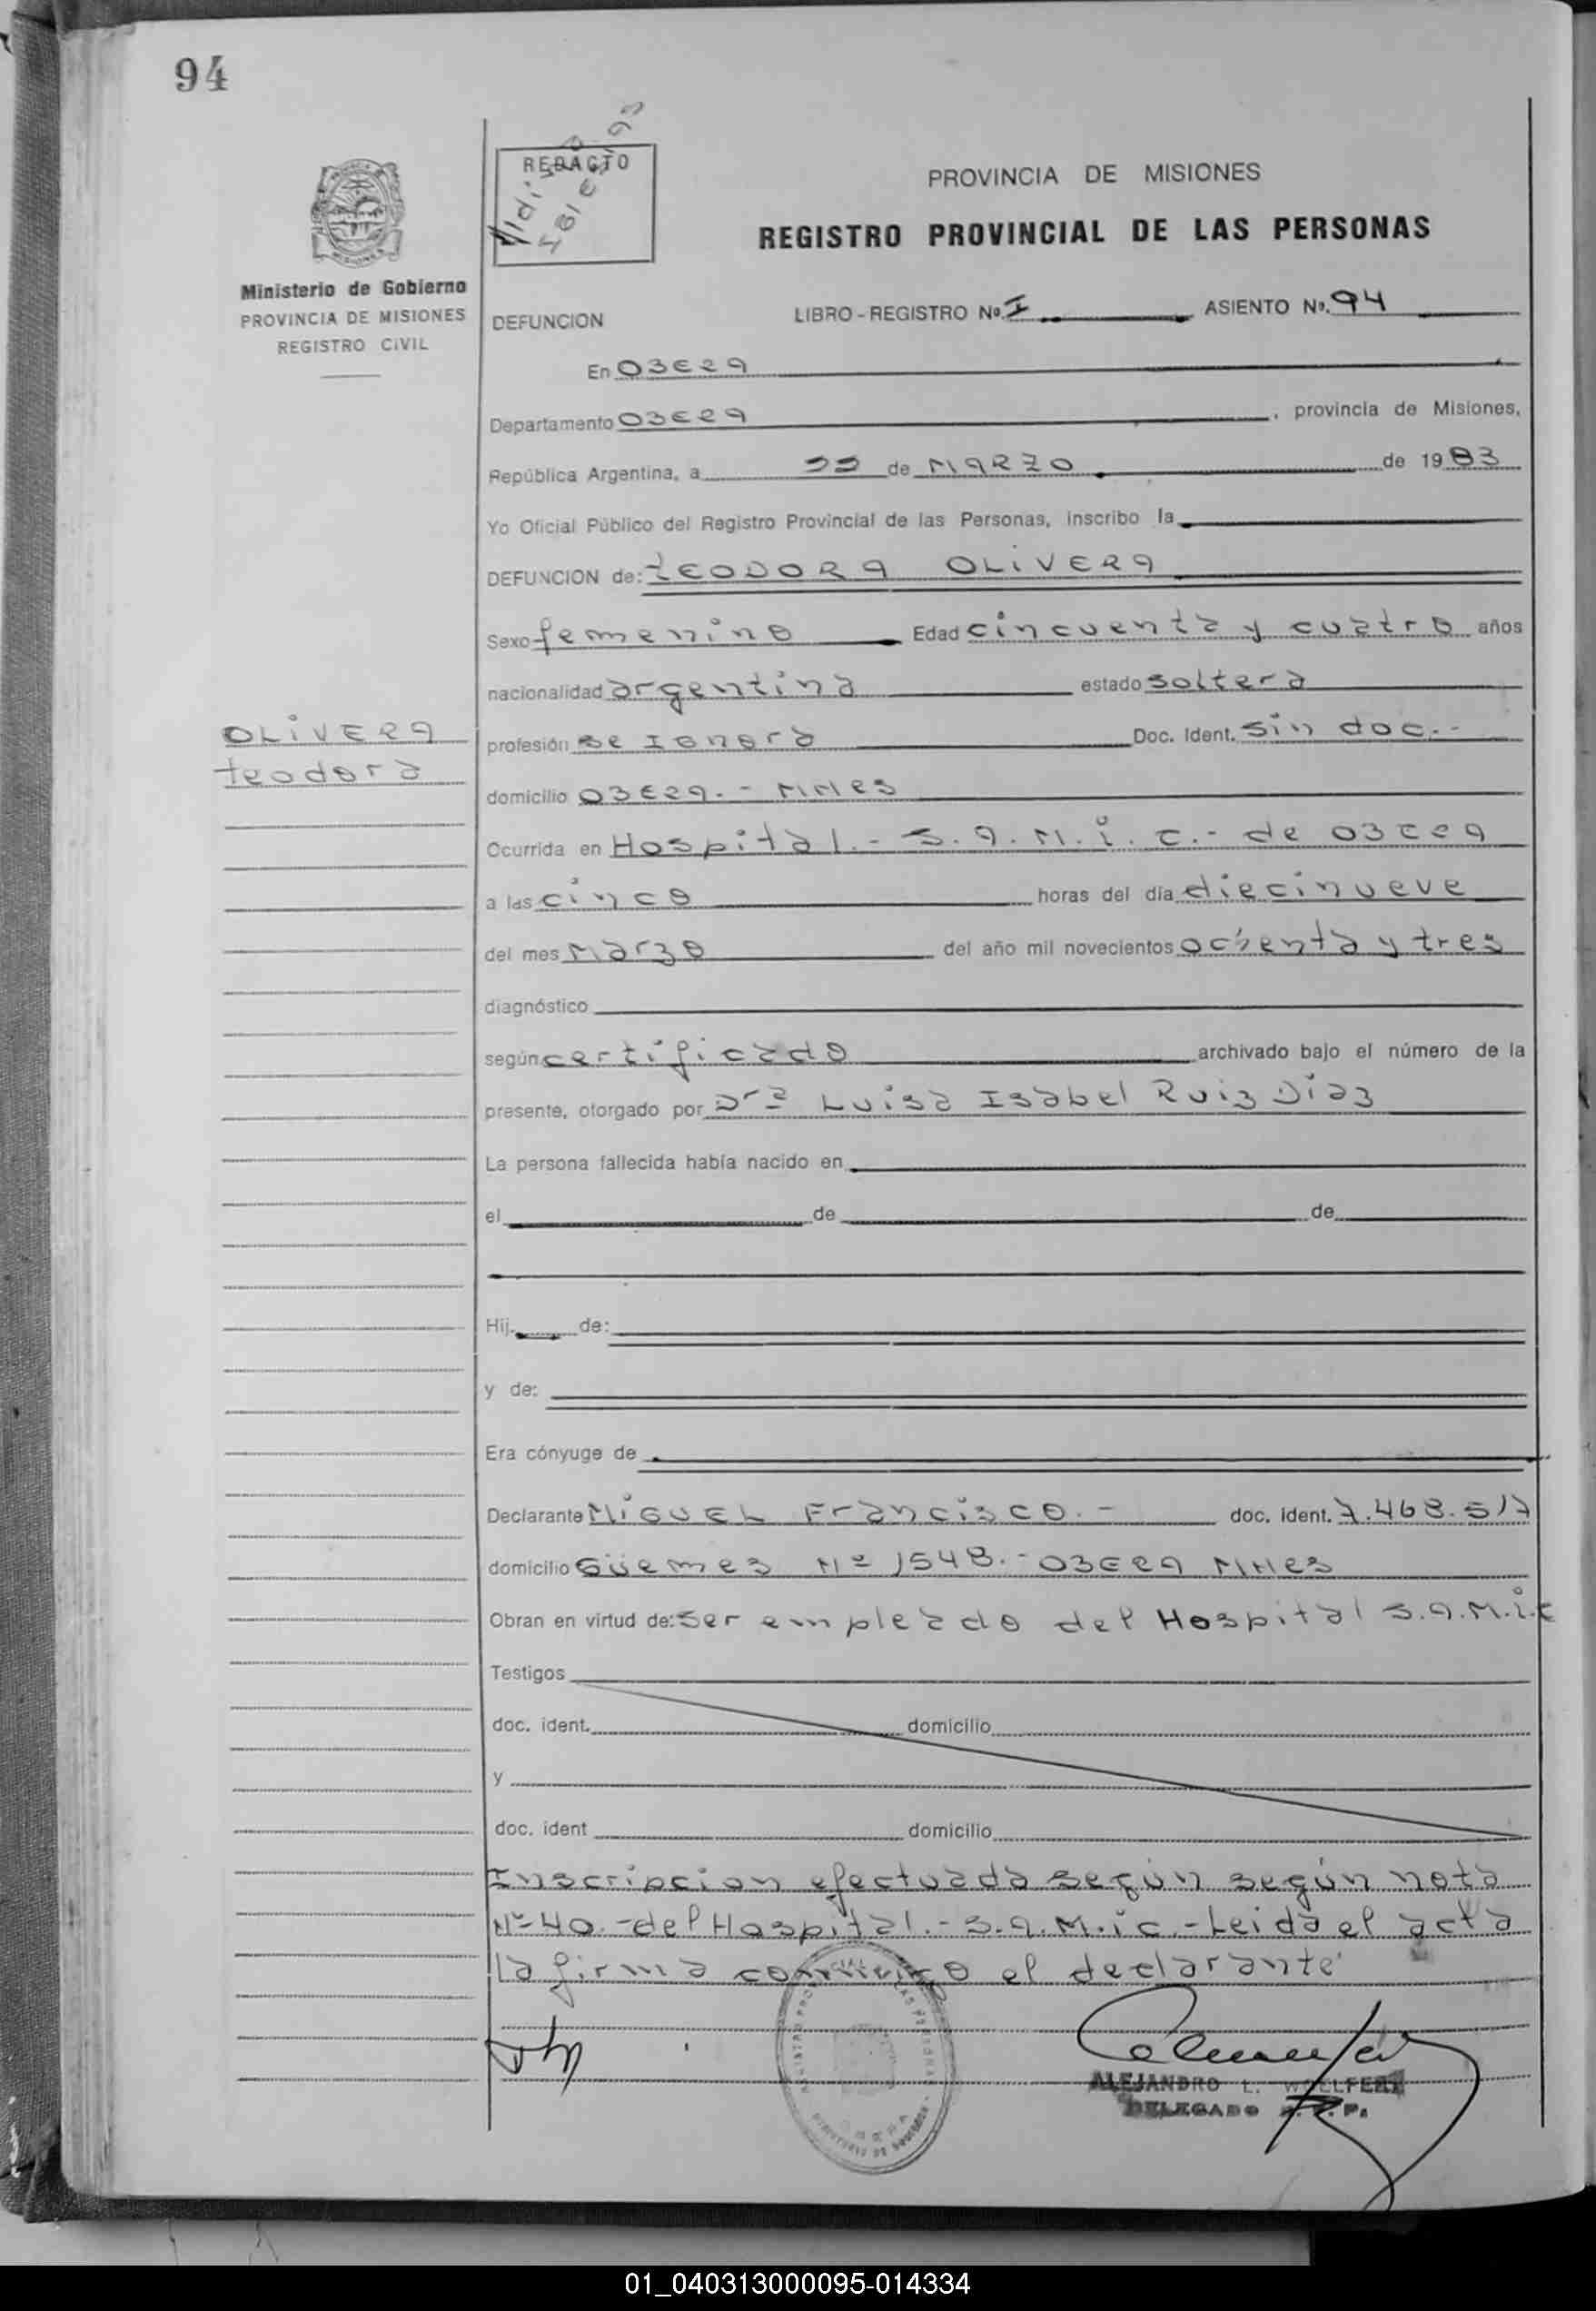 94
REDACTO
PROVINCIA DE MISIONES
REGISTRO PROVINCIAL DE LAS PERSONAS
Ministerio de Gobierno
PROVINCIA DE MISIONES
REGISTRO CIVIL
DEFUNCION LIBRO - REGISTRO Nº. I ASIENTO Nº. 94
En OBERA
Departamento OBERA , provincia de Misiones,
República Argentina, a 22 de MARZO de 1983
Yo Oficial Público del Registro Provincial de las Personas, inscribo la
DEFUNCION de: TEODORA OLIVERA
Sexo femenino Edad cincuenta y cuatro años
nacionalidad argentina estado soltera
OLIVERA
teodora
profesión se Ignora Doc. Ident. sin doc.-
domicilio OBERA.- MNES
Ocurrida en Hospital.- S.A.M.i.C.- de OBERA
a las cinco horas del día diecinueve
del mes Marzo del año mil novecientos ochenta y tres
diagnóstico
según certificado archivado bajo el número de la
presente, otorgado por Drª Luisa Isabel Ruiz Díaz
La persona fallecida había nacido en
el de de
Hij de:
y de:
Era cónyuge de
Declarante MiGUEL Francisco.- doc. ident. 7.468.517
domicilio Güemes Nº 1548.- OBERA MNes
Obran en virtud de: ser empleado del Hospital S.A.M.i.C
Testigos
doc. ident. domicilio
y
doc. ident domicilio
Inscripcion efectuada según según nota
Nº 40.- del Hospital.- S.A.M.iC.- Leida el acta
la firma conmigo el declarante
ALEJANDRO L. WOELFERT
DELEGADO R. P. P.
01_040313000095-014334